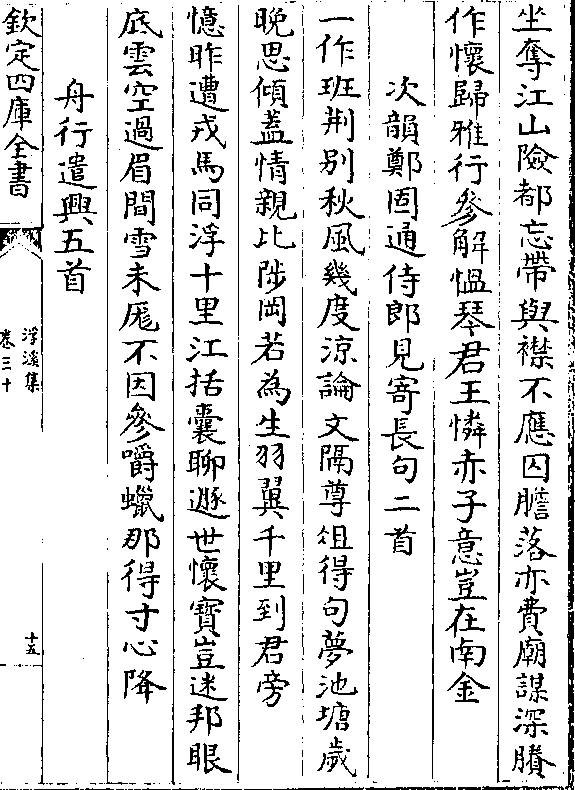 坐奪江山險都忘帶與襟不應囚膽落亦費廟謀深賸
作懷歸雅行參解慍琴君王憐赤子意豈在南金
次韻鄭固通侍郎見寄長句二首
一作班荆别秋風幾度涼論文隔尊俎得句夢池塘歲
晩思傾葢情親比陟岡若為生羽翼千里到君旁
憶昨遭戎馬同浮十里江括囊聊遯世懷寶豈迷邦眼
底雲空過眉間雪未厖不因參嚼蠟那得寸心降
舟行遣興五首
欽定四庫全書
浮溪集
卷三十
十五